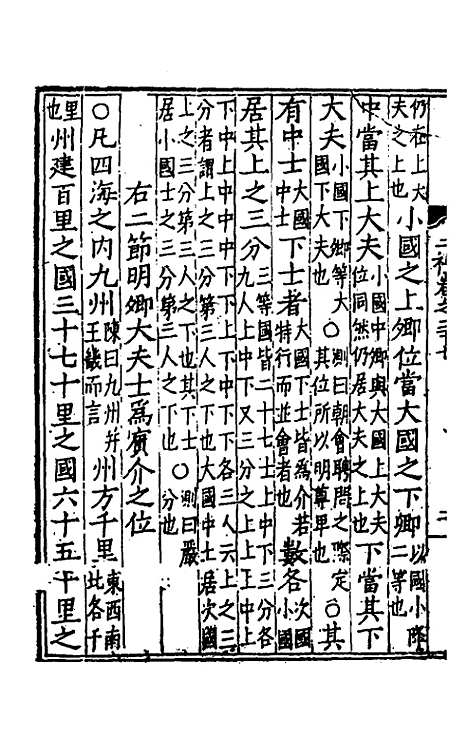 仍在上大夫之上也小國之上卿位當大國之下卿以國小降二等也
中當其上大夫小國中卿與大國上大夫位同然仍居大夫之上也下當其下
大夫小國下卿等大國下大夫也○測曰朝會聘問之際定其位所以明尊卑也○其
有中士大國中士下士者大國下士皆爲介若特行而並會者也數各次國小國
居其上之三分三等國皆二十七士上中下三分各九人上中下又三分之上上上中上
下中上中中中下下上下中下下各三人云上之三
分者謂上之三分第三人之下也大國中士居次國
上之三分第三人之下也其下士居小國士之三分第三人之下也○測曰嚴分也
右二節明卿大夫士爲賓介之位
○凡四海之内九州陳曰九州并王畿而言州方千里東西南北各千
里也州建百里之國三十七十里之國六十五十里之